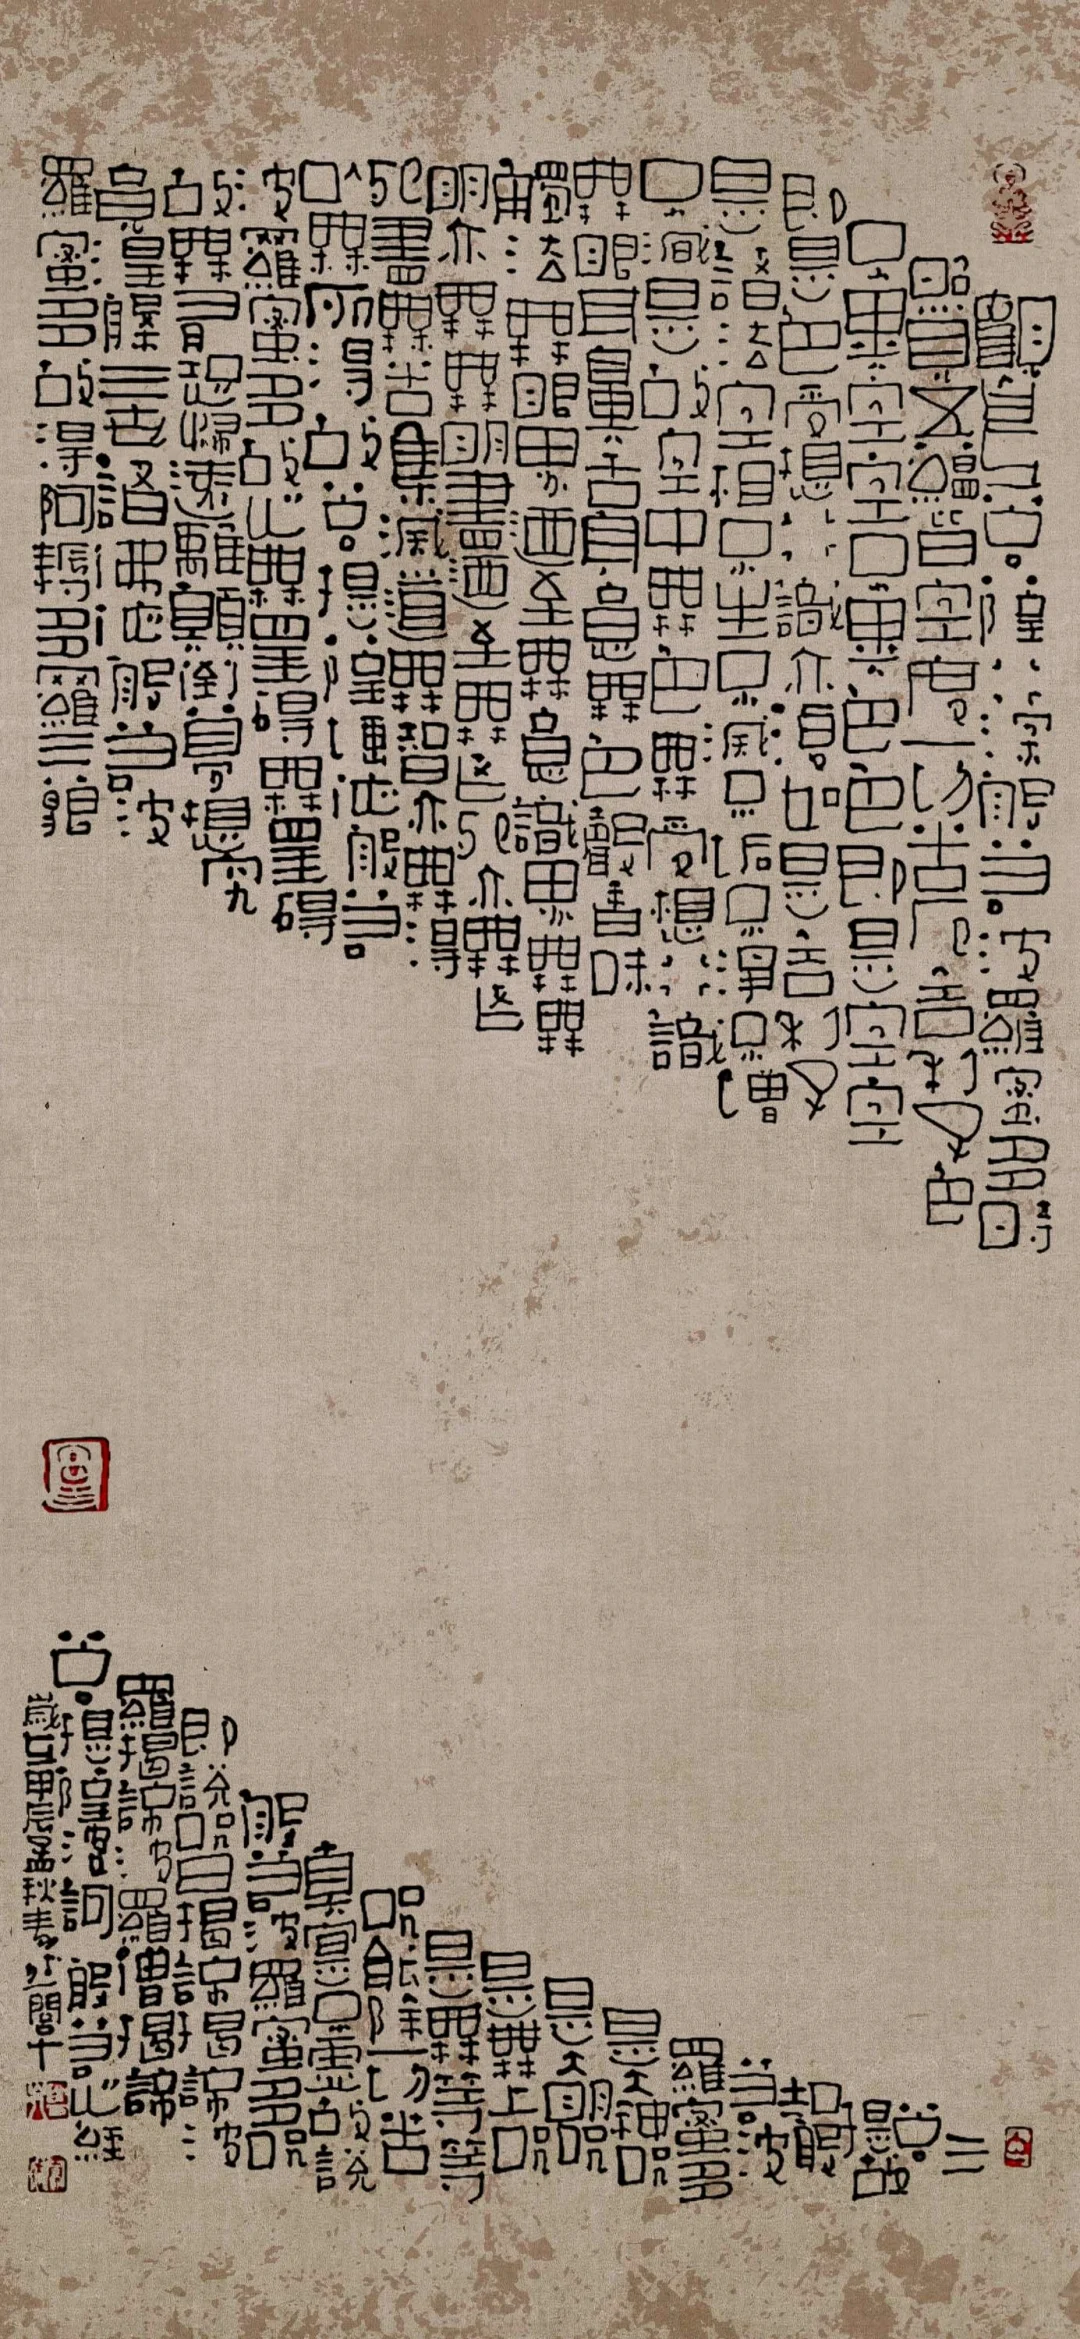 觀自在菩薩行深般若波羅蜜多時
照見五蘊皆空度一切苦厄舍利子色
不異空空不異色色即是空空
即是色受想行識亦復如是舍利子
是諸法空相不生不滅不垢不淨不增
不減是故空中無色無受想行識
無眼耳鼻舌身意無色聲香味
觸法無眼界迺至無意識界無無
明亦無無明盡迺至無老死亦無老
死盡無苦集滅道無智亦無得
以無所得故菩提薩埵依般若
波羅蜜多故心無罣礙無罣礙
故無有恐怖遠離顛倒夢想究
竟涅槃三世諸佛依般若波
羅蜜多故得阿耨多羅三藐
三
菩
提故
知般
若波
羅蜜多
是大神咒
是大明咒
是無上咒
是無等等
咒能除一切苦
真實不虛故說
般若波羅蜜多咒
即說咒曰揭諦揭諦波
羅揭諦波羅僧揭諦
菩提薩婆訶般若心經
歲在甲辰孟秋書